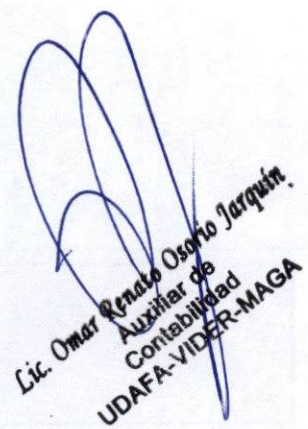 Lic. Omar Renato Osorio Jarquín.
Auxiliar de
Contabilidad
UDAFA-VIDER-MAGA